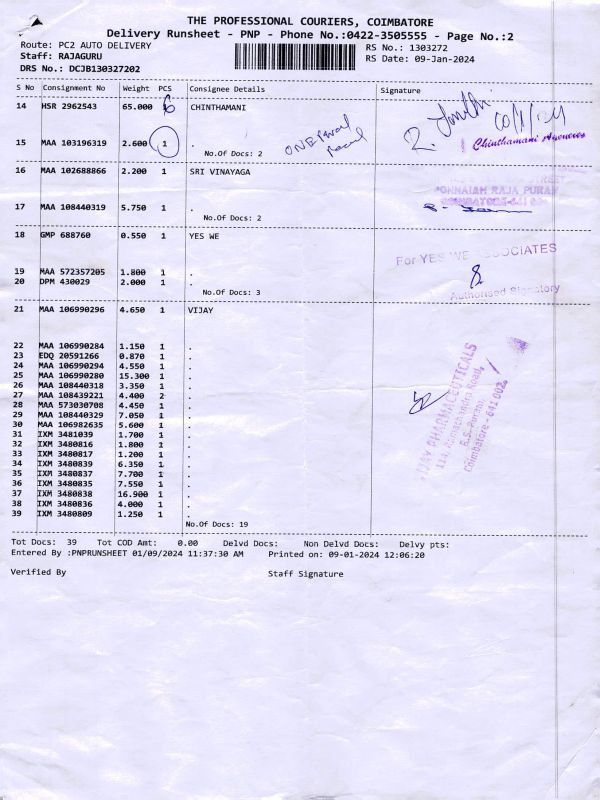 THE PROFESSIONAL COURIERS, COIMBATORE
Delivery Runsheet - PNP - Phone No.:0422-3505555 - Page No.:2
Route: PC2 AUTO DELIVERY
RS No.: 1303272
Staff: RAJAGURU
RS Date: 09-Jan-2024
DRS No.: DCJB130327202
S No Consignment No Weight PCS Consignee Details Signature
14 HSR 2962543 65.000 6 CHINTHAMANI
15 MAA 103196319 2.600 1 .
No.Of Docs: 2
ONE
Chinthamani Agencies
16 MAA 102688866 2.200 1 SRI VINAYAGA
STREET
PONNAIAH RAJA PURAM
COIMBATORE-641 00
17 MAA 108440319 5.750 1 .
No.Of Docs: 2
18 GMP 688760 0.550 1 YES WE
For YES WE ASSOCIATES
19 MAA 572357205 1.800 1 .
20 DPM 430029 2.000 1 .
No.Of Docs: 3
Authorised Signatory
21 MAA 106990296 4.650 1 VIJAY
22 MAA 106990284 1.150 1 .
23 EDQ 20591266 0.870 1 .
24 MAA 106990294 4.550 1 .
25 MAA 106990280 15.300 1 .
26 MAA 108440318 3.350 1 .
27 MAA 108439221 4.400 2 .
28 MAA 573030708 4.450 1 .
29 MAA 108440329 7.050 1 .
30 MAA 106982635 5.600 1 .
31 IXM 3481039 1.700 1 .
32 IXM 3480816 1.800 1 .
33 IXM 3480817 1.200 1 .
34 IXM 3480839 6.350 1 .
35 IXM 3480837 7.700 1 .
36 IXM 3480835 7.550 1 .
37 IXM 3480838 16.900 1 .
38 IXM 3480836 4.000 1 .
39 IXM 3480809 1.250 1 .
No.Of Docs: 19
VIJAY PHARMACEUTICALS
114, Ramachandra Road,
R.S. Puram,
Coimbatore - 641 002.
Tot Docs: 39 Tot COD Amt: 0.00 Delvd Docs: Non Delvd Docs: Delvy pts:
Entered By :PNPRUNSHEET 01/09/2024 11:37:30 AM Printed on: 09-01-2024 12:06:20
Verified By Staff Signature